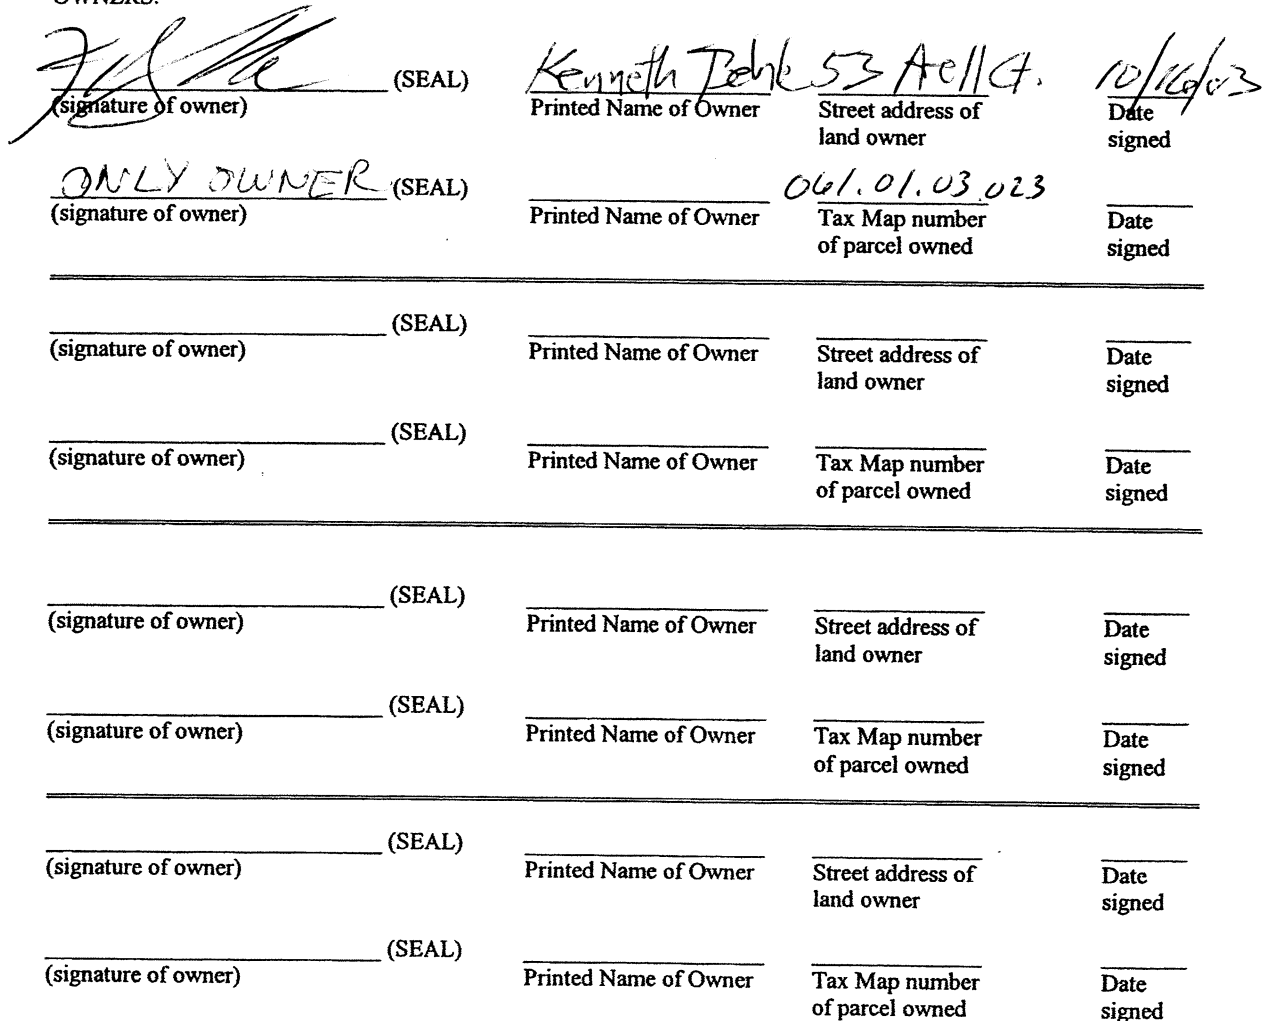 OWNERS:
(SEAL) Kenneth 53 Ct. 10/16/03
(signature of owner) Printed Name of Owner Street address of Date
land owner signed
ONLY OWNER (SEAL) 061.01.03.023
(signature of owner) Printed Name of Owner Tax Map number Date
of parcel owned signed
(SEAL)
(signature of owner) Printed Name of Owner Street address of Date
land owner signed
(SEAL)
(signature of owner) Printed Name of Owner Tax Map number Date
of parcel owned signed
(SEAL)
(signature of owner) Printed Name of Owner Street address of Date
land owner signed
(SEAL)
(signature of owner) Printed Name of Owner Tax Map number Date
of parcel owned signed
(SEAL)
(signature of owner) Printed Name of Owner Street address of Date
land owner signed
(SEAL)
(signature of owner) Printed Name of Owner Tax Map number Date
of parcel owned signed